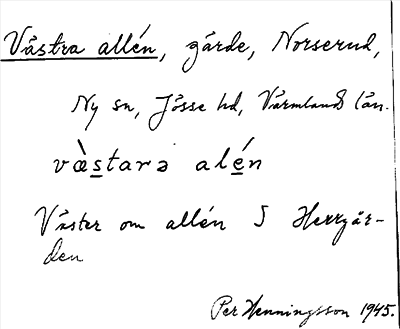 Västra allén, gärde, Norserud,
Ny sn, Jösse hd, Värmlands län.
væ̀starə alén
Väster om allén S Herrgår-
den
Per Henningsson 1945.